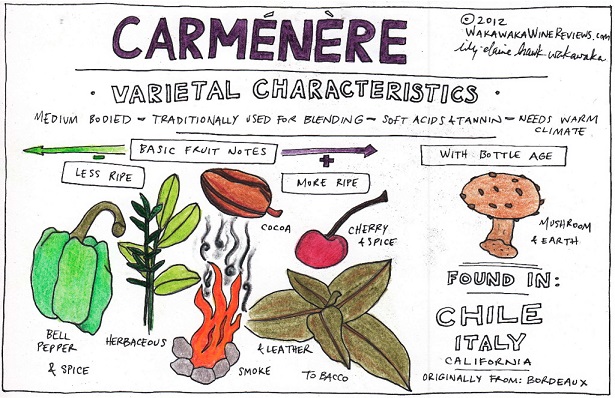 CARMÉNÈRE
© 2012
WAKAWAKAWINEREVIEWS.COM
elaine hawk wakawaka
· VARIETAL CHARACTERISTICS ·
MEDIUM BODIED ~ TRADITIONALLY USED FOR BLENDING ~ SOFT ACIDS & TANNIN ~ NEEDS WARM
CLIMATE
BASIC FRUIT NOTES
-
+
LESS RIPE
MORE RIPE
WITH BOTTLE AGE
COCOA
CHERRY
& SPICE
MUSHROOM
& EARTH
BELL
PEPPER
& SPICE
HERBACEOUS
SMOKE
& LEATHER
TOBACCO
FOUND IN:
CHILE
ITALY
CALIFORNIA
ORIGINALLY FROM: BORDEAUX